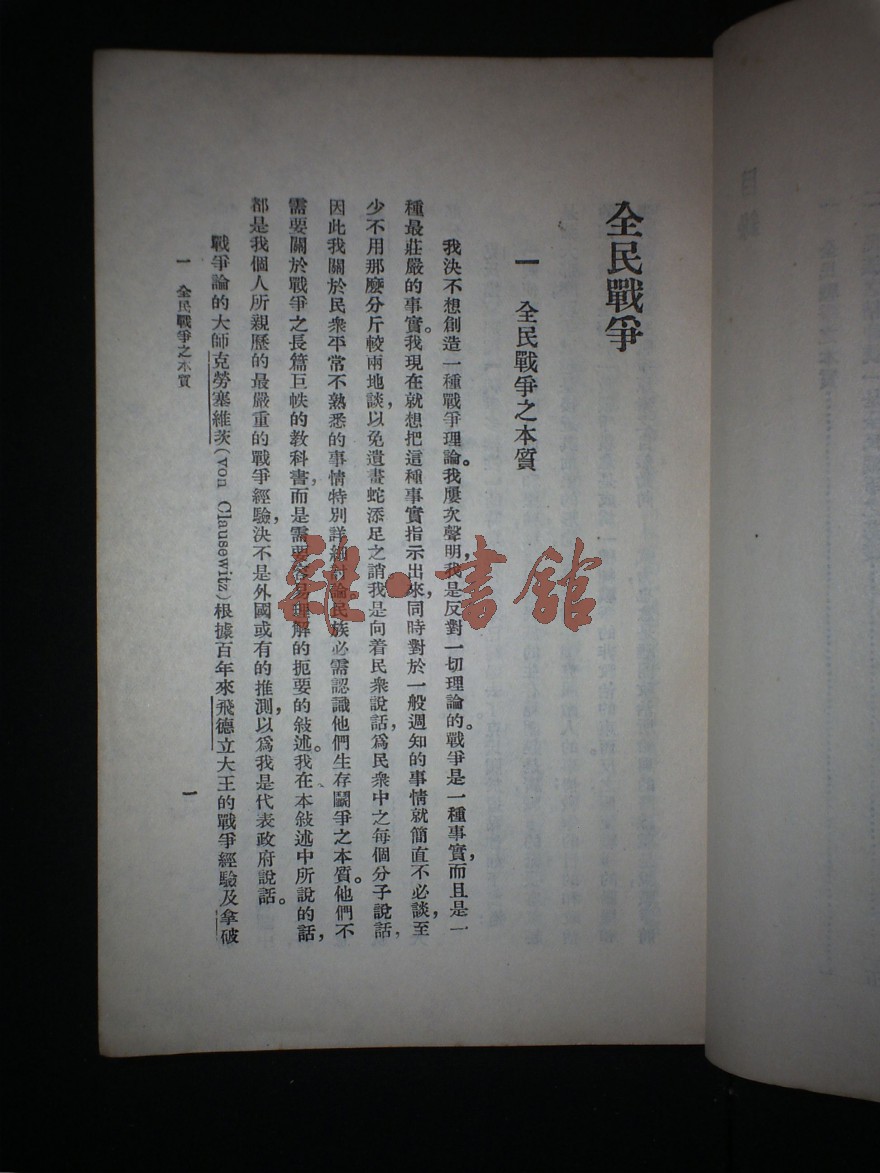 全民戰爭
一 全民戰爭之本質
我決不想創造一種戰爭理論。我屢次聲明,我是反對一切理論的。戰爭是一種事實,而且是一
種最莊嚴的事實。我現在就想把這種事實指示出來,同時對於一般週知的事情就簡直不必談,至
少不用那麼分斤較兩地談,以免遺畫蛇添足之誚我是向着民衆說話,爲民衆中之每個分子說話,
因此我關於民衆平常不熟悉的事情特別詳細討論民族必需認識他們生存鬭爭之本質。他們不
需要關於戰爭之長篇巨帙的教科書,而是需要容易理解的扼要的敍述。我在本敍述中所說的話,
都是我個人所親歷的最嚴重的戰爭經驗,決不是外國或有的推測,以爲我是代表政府說話。
戰爭論的大師克勞塞維茨(von Clausewitz)根據百年來飛德立大王的戰爭經驗及拿破
一 全民戰爭之本質
一
雜·書館
目錄